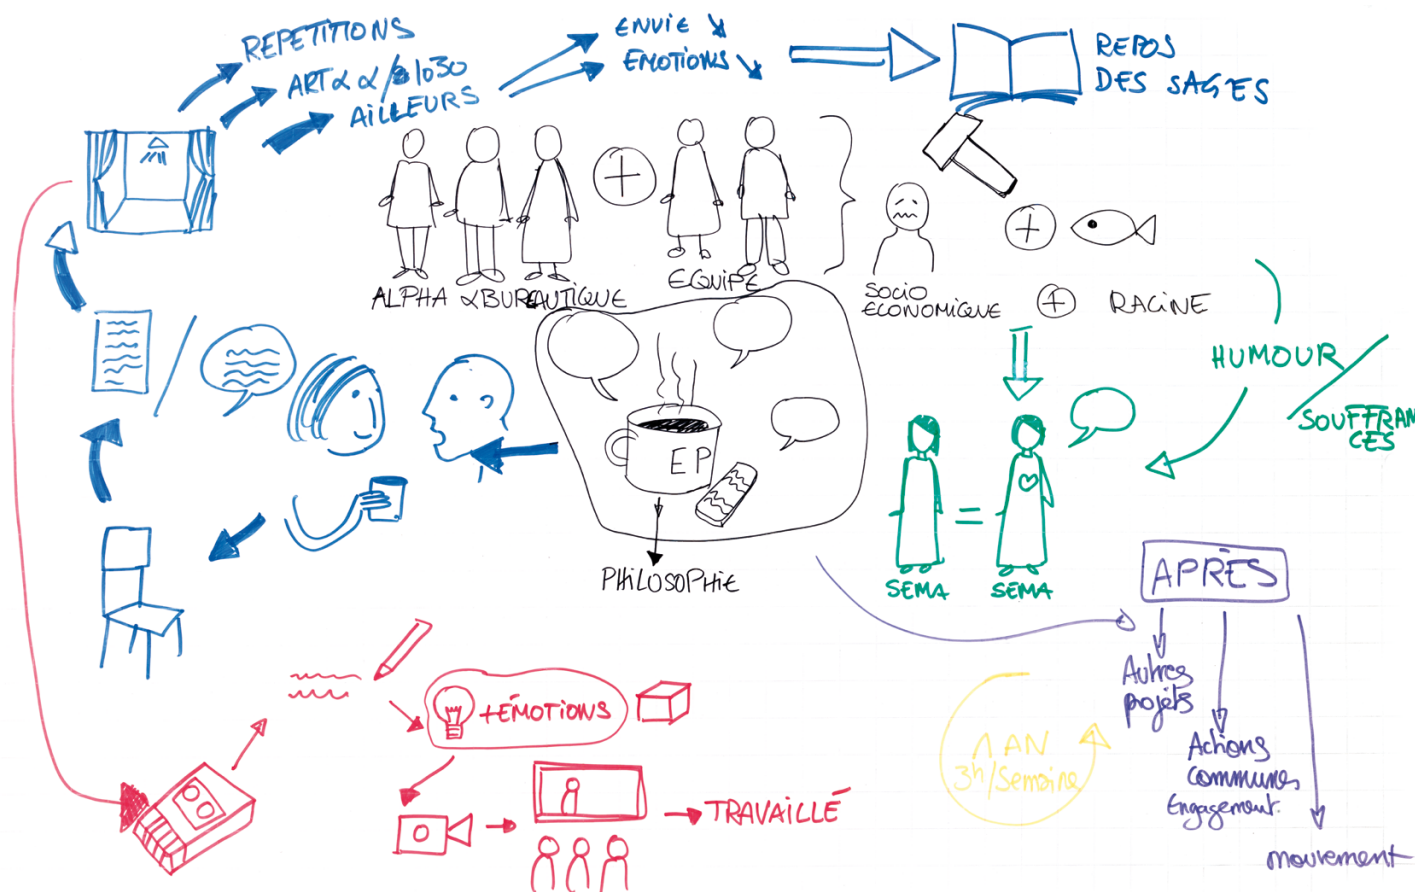 REPETITIONS
ART α α / à 1030
AILLEURS
ENVIE ↘
EMOTIONS ↘
REPOS
DES SAGES
ALPHA αBUREAUTIQUE
EQUIPE
SOCIO
ECONOMIQUE
RACINE
HUMOUR
SOUFFRAN
CES
EP
PHILOSOPHIE
SEMA = SEMA
APRÈS
Autres
projets
Actions
communes
Engagement.
mouvement
1 AN
3h/Semaine
+ÉMOTIONS
TRAVAILLÉ